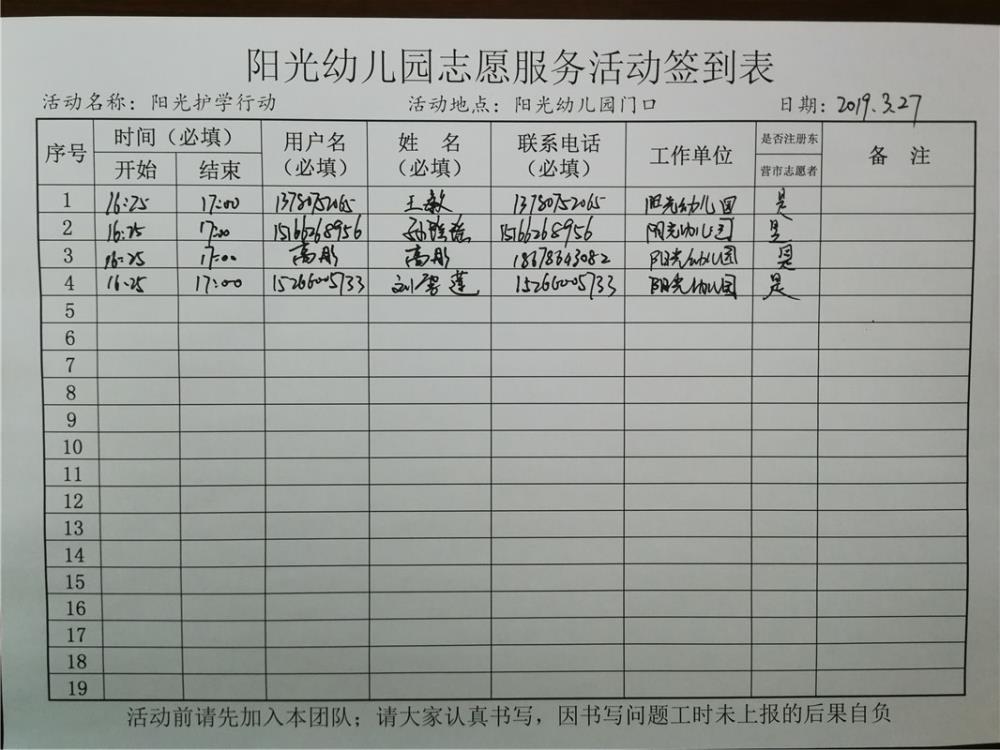 阳光幼儿园志愿服务活动签到表
活动名称：阳光护学行动 活动地点：阳光幼儿园门口 日期：2019.3.27
序号 时间（必填） 开始 结束 用户名（必填） 姓 名（必填） 联系电话（必填） 工作单位 是否注册东营市志愿者 备 注
1 16:25 17:00 13780752065 王敏 13780752065 阳光幼儿园 是
2 16:25 17:00 15166268956 孙瑶瑶 15166268956 阳光幼儿园 是
3 16:25 17:00 高彤 高彤 18678643082 阳光幼儿园 是
4 16:25 17:00 15266005733 刘雪莲 15266005733 阳光幼儿园 是
5
6
7
8
9
10
11
12
13
14
15
16
17
18
19
活动前请先加入本团队；请大家认真书写，因书写问题工时未上报的后果自负